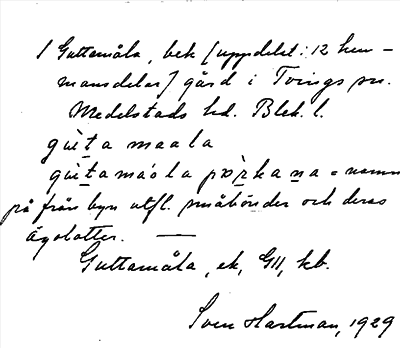 1 Guttamåla, bek [uppdelat: 12 hem-
mansdelar] gård i Tvings sn.
Medelstads hd. Blek. l.
gùt̲a maala
gùt̲amáola pær̲kan̲a = namn
på från byn utfl. småbönder och deras
ägolotter. —
Guttamåla, ek, GII, kb.
Sven Hartman, 1929